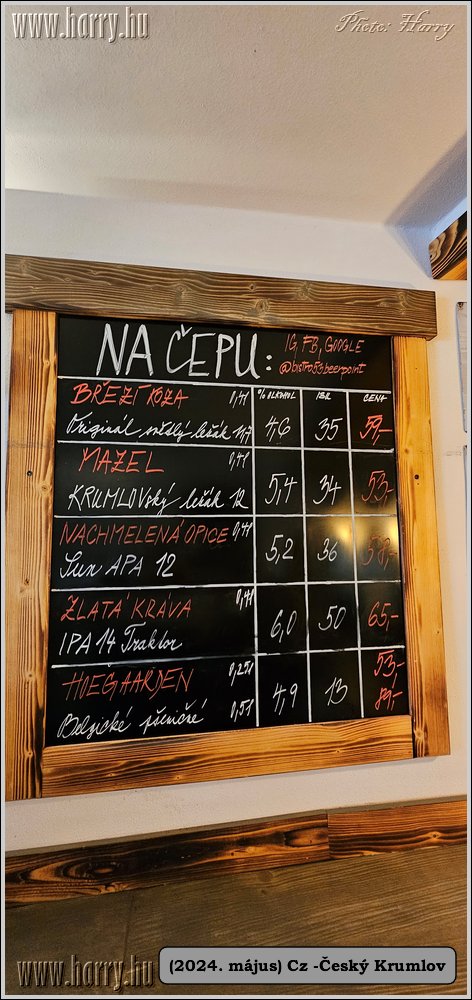 www.harry.hu
Photo: Harry
NA ČEPU:
IG, FB, GOOGLE
@bistro53beerpoint
% ALKOHOL IBU CENA
BŘEZÍ KOZA 0,4l
Originál světlý ležák 11,7 4,6 35 59,-
MAZEL 0,4l
KRUMLOVSKÝ ležák 12 5,4 34 53,-
NACHMELENÁ OPICE 0,4l
Sun APA 12 5,2 36 58,-
ZLATÁ KRÁVA 0,4l
IPA 14 Traktor 6,0 50 65,-
HOEGAARDEN 0,25l 53,-
Belgické pšeničné 0,5l 4,9 13 89,-
www.harry.hu
(2024. május) Cz -Český Krumlov